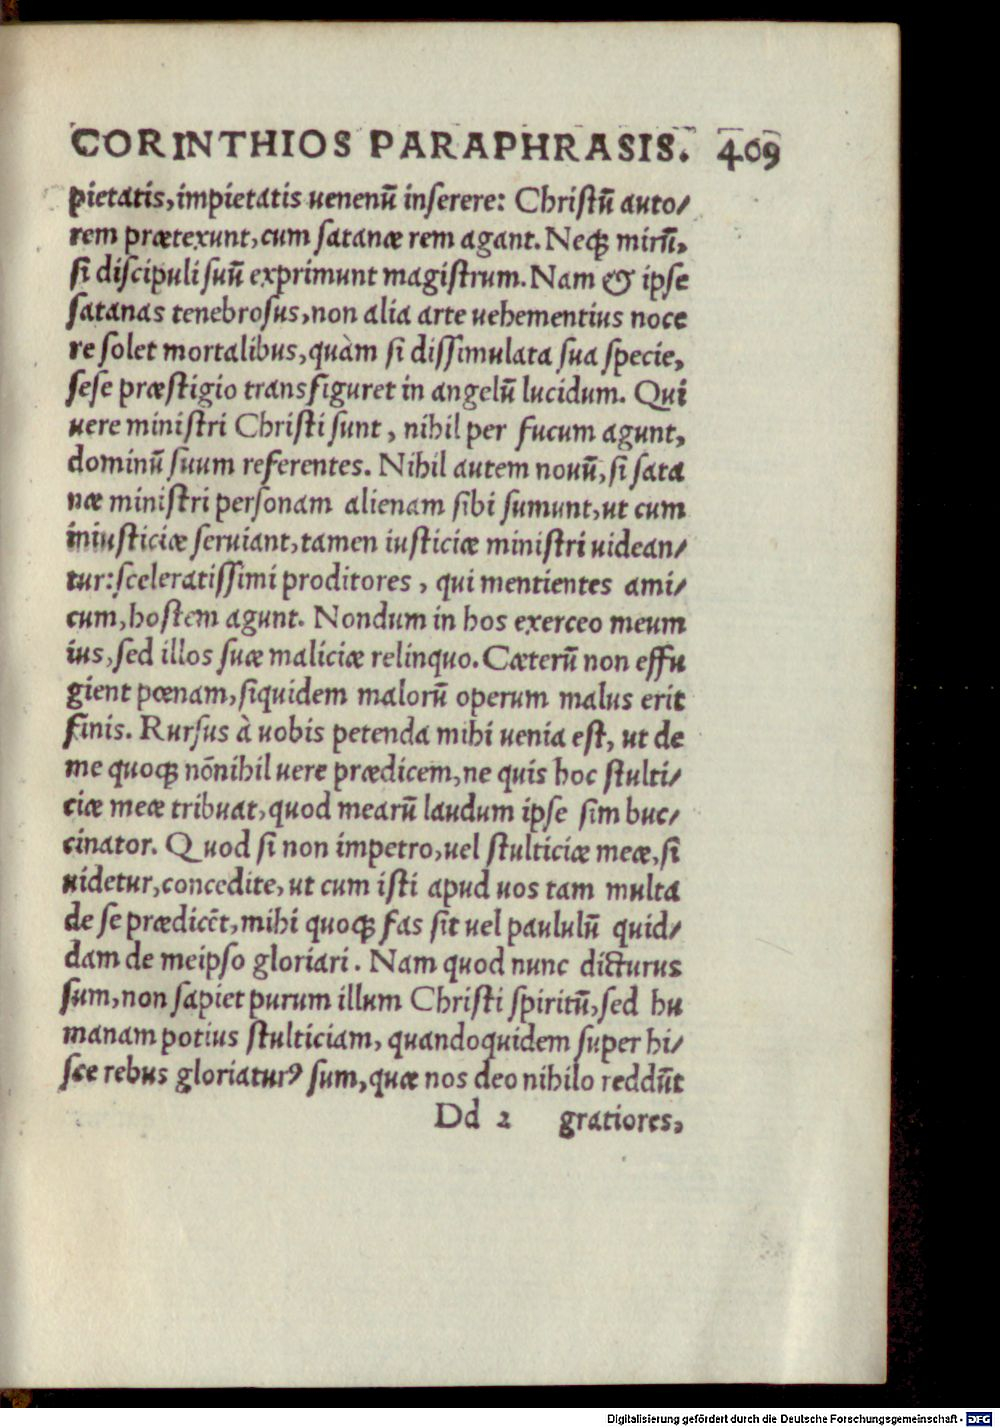 CORINTHIOS PARAPHRASIS. 409
pietatis, impietatis uenenũ inserere: Christũ auto/
rem prætexunt, cum satanæ rem agant. Neqꝫ mirũ,
si discipuli suũ exprimunt magistrum. Nam & ipse
satanas tenebrosus, non alia arte uehementius noce
re solet mortalibus, quàm si dissimulata sua specie,
sese præstigio transfiguret in angelũ lucidum. Qui
uere ministri Christi sunt, nihil per fucum agunt,
dominũ suum referentes. Nihil autem nouũ, si sata
næ ministri personam alienam sibi sumunt, ut cum
iniusticiæ seruiant, tamen iusticiæ ministri uidean/
tur: sceleratissimi proditores, qui mentientes ami/
cum, hostem agunt. Nondum in hos exerceo meum
ius, sed illos suæ maliciæ relinquo. Cæterũ non effu
gient pœnam, siquidem malorũ operum malus erit
finis. Rursus à uobis petenda mihi uenia est, ut de
me quoqꝫ nõnihil uere prædicem, ne quis hoc stulti/
ciæ meæ tribuat, quod mearũ laudum ipse sim buc/
cinator. Quod si non impetro, uel stulticiæ meæ, si
uidetur, concedite, ut cum isti apud uos tam multa
de se prædicẽt, mihi quoqꝫ fas sit uel paululũ quid/
dam de meipso gloriari. Nam quod nunc dicturus
sum, non sapiet purum illum Christi spiritũ, sed hu
manam potius stulticiam, quandoquidem super hi/
sce rebus gloriaturꝰ sum, quæ nos deo nihilo reddũt
Dd 2 gratiores,
Digitalisierung gefördert durch die Deutsche Forschungsgemeinschaft - DFG